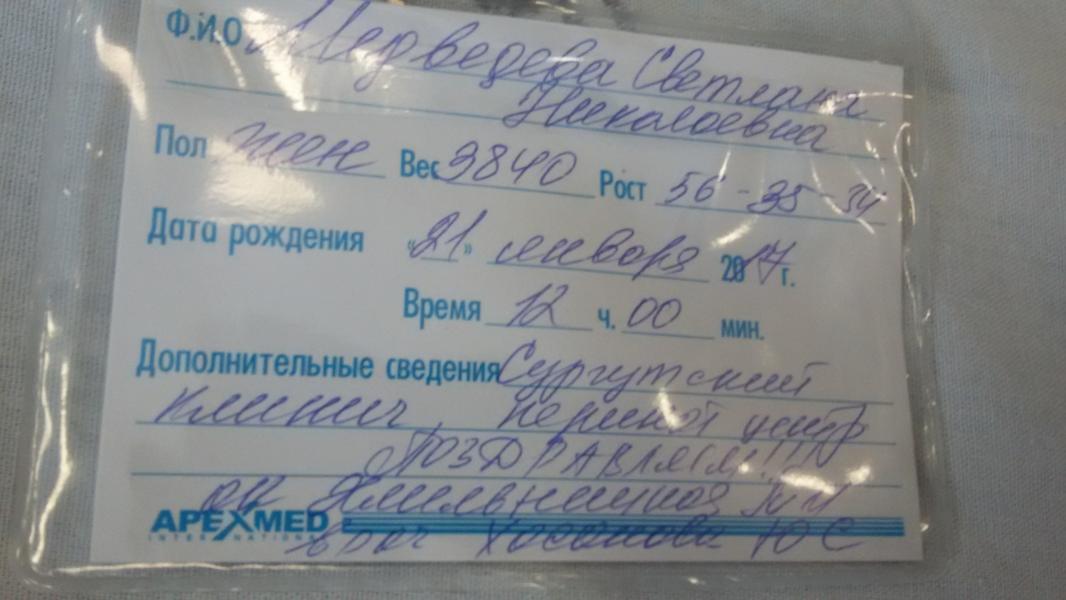 Ф.И.О Медведева Светлана
Николаевна
Пол жен Вес 3840 Рост 56-35-34
Дата рождения «21» января 2017 г.
Время 12 ч. 00 мин.
Дополнительные сведения Сургутский
клинич перинат центр
ПОЗДРАВЛЯЕМ!!!
ак Хмельницкая
APEXMED
INTERNATIONAL
врач Хасанова Ю С